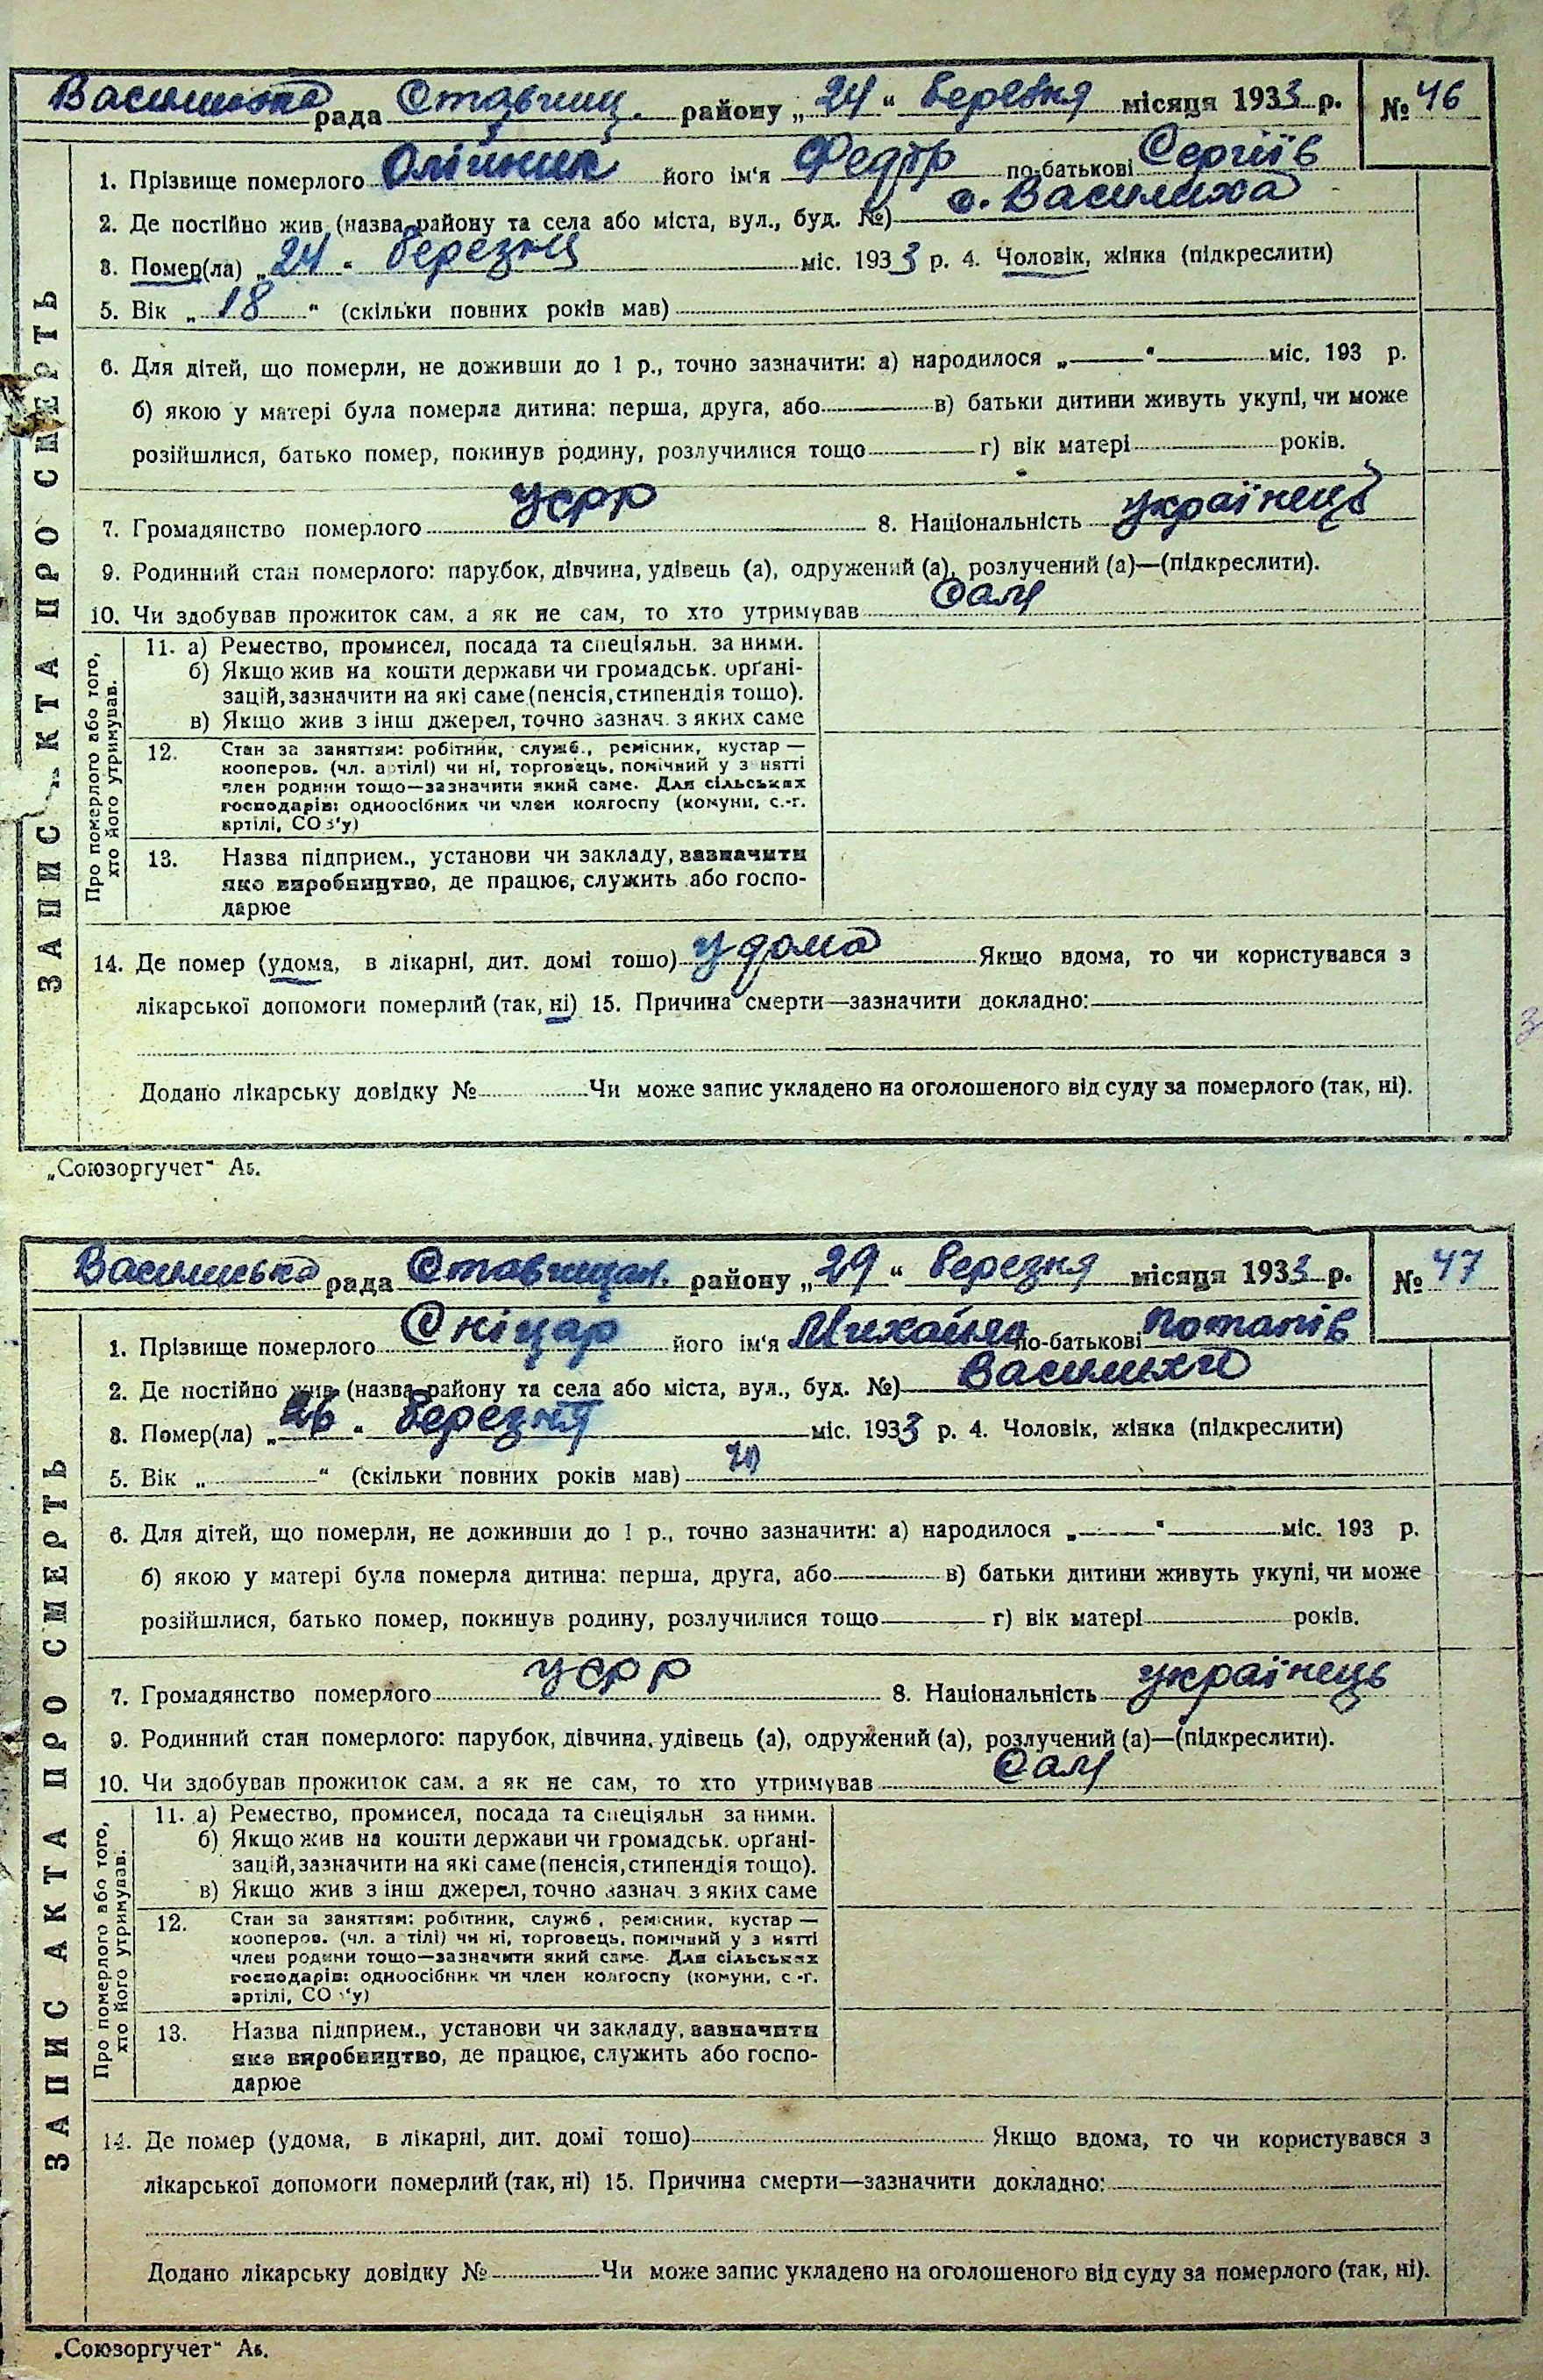 рада Ставищ. району „24“ березня місяця 1933 р. № 46
1. Прізвище померлого Олійник його ім'я Федір по-батькові Сергіїв
2. Де постійно жив (назва району та села або міста, вул., буд. №) с. Василиха
3. Помер(ла) „24“ березня міс. 1933 р. 4. Чоловік, жінка (підкреслити)
5. Вік „18“ (скільки повних років мав)
6. Для дітей, що померли, не доживши до 1 р., точно зазначити: а) народилося „ “ міс. 193 р.
б) якою у матері була померла дитина: перша, друга, або в) батьки дитини живуть укупі, чи може
розійшлися, батько помер, покинув родину, розлучилися тощо г) вік матері років.
7. Громадянство померлого УСРР 8. Національність українець
9. Родинний стан померлого: парубок, дівчина, удівець (а), одружений (а), розлучений (а)—(підкреслити).
10. Чи здобував прожиток сам, а як не сам, то хто утримував Сам
ЗАПИС АКТА ПРО СМЕРТЬ
Про померлого або того,
хто його утримував.
11. а) Ремество, промисел, посада та спеціяльн. за ними.
б) Якщо жив на кошти держави чи громадськ. органі-
зацій, зазначити на які саме (пенсія, стипендія тощо).
в) Якщо жив з інш джерел, точно зазнач. з яких саме
12. Стан за заняттям: робітник, служб., ремісник, кустар —
кооперов. (чл. артілі) чи ні, торговець, помічний у з нятті
член родини тощо—зазначити який саме. Для сільських
господарів: одноосібник чи член колгоспу (комуни, с.-г.
артілі, СОЗ'у)
13. Назва підприєм., установи чи закладу, зазначити
яке виробництво, де працює, служить або госпо-
дарює
14. Де помер (удома, в лікарні, дит. домі тощо) удома Якщо вдома, то чи користувався з
лікарської допомоги померлий (так, ні) 15. Причина смерти—зазначити докладно:
Додано лікарську довідку № Чи може запис укладено на оголошеного від суду за померлого (так, ні).
„Союзоргучет“ Аб.
Василиська рада Ставищан. району „29“ березня місяця 1933 р. № 47
1. Прізвище померлого Сніцар його ім'я Михайло по-батькові Потапів
2. Де постійно жив (назва району та села або міста, вул., буд. №) Василиха
3. Помер(ла) „26“ березня міс. 1933 р. 4. Чоловік, жінка (підкреслити)
5. Вік „ “ (скільки повних років мав)
6. Для дітей, що померли, не доживши до 1 р., точно зазначити: а) народилося „ “ міс. 193 р.
б) якою у матері була померла дитина: перша, друга, або в) батьки дитини живуть укупі, чи може
розійшлися, батько помер, покинув родину, розлучилися тощо г) вік матері років.
7. Громадянство померлого УСРР 8. Національність українець
9. Родинний стан померлого: парубок, дівчина, удівець (а), одружений (а), розлучений (а)—(підкреслити).
10. Чи здобував прожиток сам, а як не сам, то хто утримував Сам
ЗАПИС АКТА ПРО СМЕРТЬ
Про померлого або того,
хто його утримував.
11. а) Ремество, промисел, посада та спеціяльн за ними.
б) Якщо жив на кошти держави чи громадськ. органі-
зацій, зазначити на які саме (пенсія, стипендія тощо).
в) Якщо жив з інш джерел, точно зазнач. з яких саме
12. Стан за заняттям: робітник, служб., ремісник, кустар —
кооперов. (чл. а тілі) чи ні, торговець, помічний у з нятті
член родини тощо—зазначити який саме. Для сільських
господарів: одноосібник чи член колгоспу (комуни, с-г.
артілі, СО 'у)
13. Назва підприєм., установи чи закладу, зазначити
яке виробництво, де працює, служить або госпо-
дарює
14. Де помер (удома, в лікарні, дит. домі тощо) Якщо вдома, то чи користувався з
лікарської допомоги померлий (так, ні) 15. Причина смерти—зазначити докладно:
Додано лікарську довідку № Чи може запис укладено на оголошеного від суду за померлого (так, ні).
„Союзоргучет“ Аб.